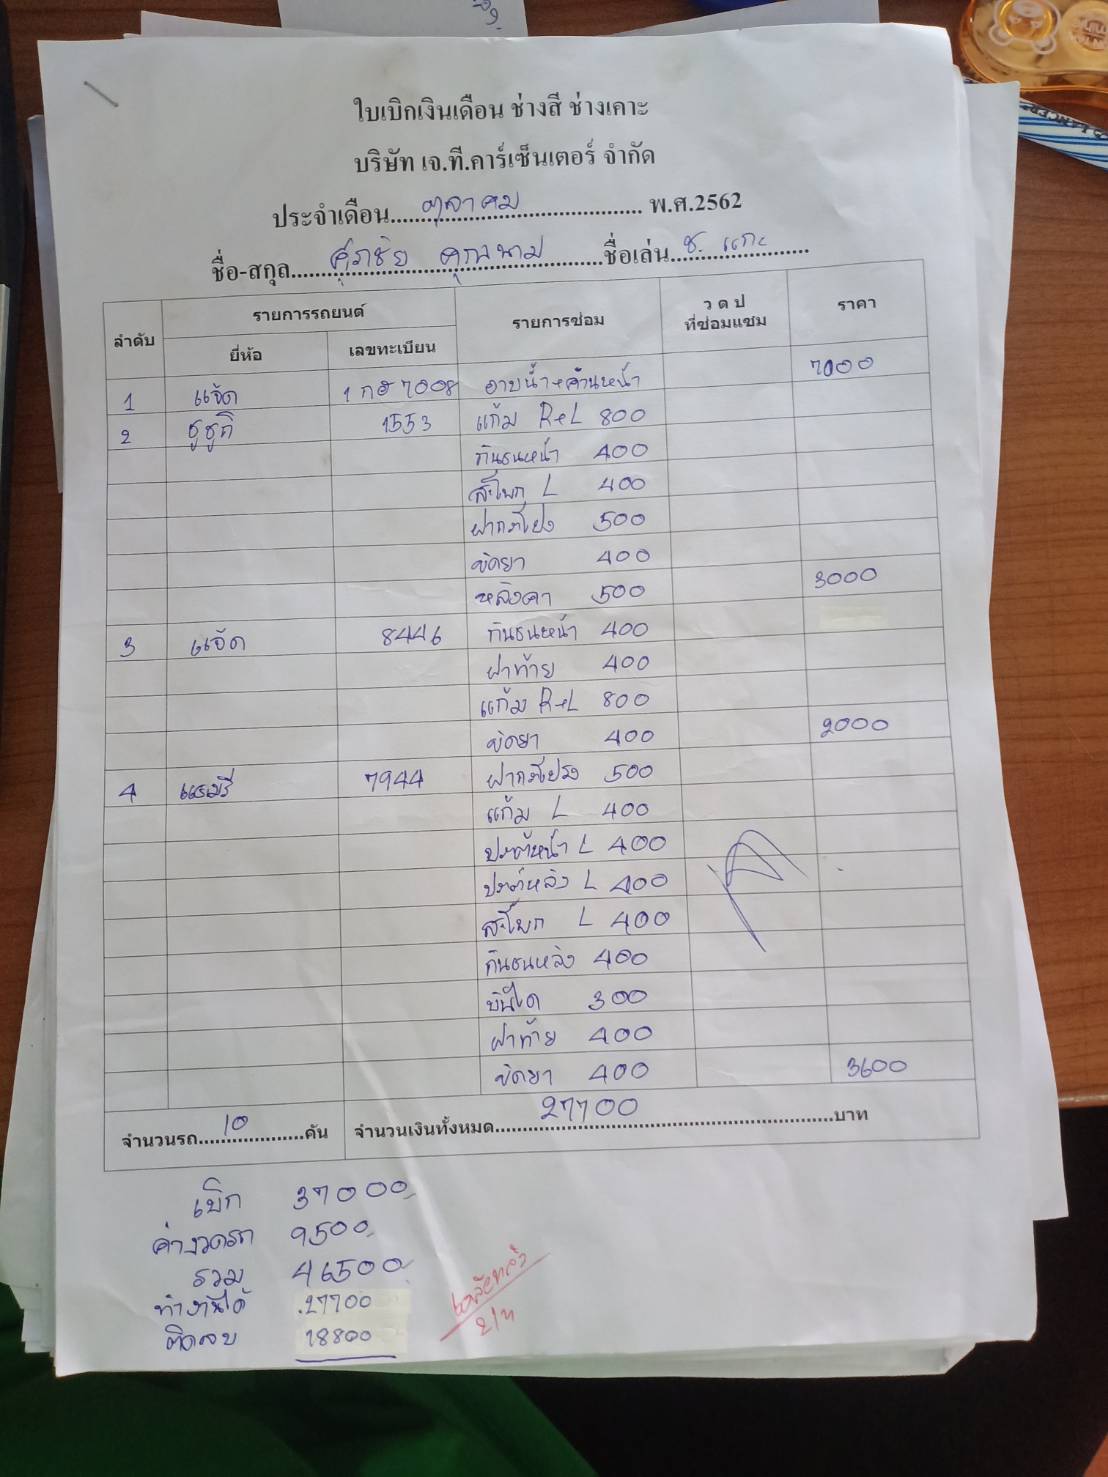 ใบเบิกเงินเดือน ช่างสี ช่างเคาะ
บริษัท เจ.ที.คาร์เซ็นเตอร์ จำกัด
ประจำเดือน ตุลาคม พ.ศ.2562
ชื่อ-สกุล ศุภชัย คุณนาม ชื่อเล่น ช. แกะ
ลำดับ รายการรถยนต์ รายการซ่อม ว ด ป ที่ซ่อมแซม ราคา
ยี่ห้อ เลขทะเบียน
1 แจ๊ด 7008 อาบน้ำ+ด้านหน้า 7000
2 ซูซูกิ 1553 แก้ม R+L 800
กันชนหน้า 400
สะโพก L 400
ฝากระโปง 500
ขัดยา 400
หลังคา 500 3000
3 แจ๊ด 8446 กันชนหน้า 400
ฝาท้าย 400
แก้ม R+L 800
ขัดยา 400 2000
4 แคมรี่ 7944 ฝากระโปรง 500
แก้ม L 400
ปะตูหน้า L 400
ปะตูหลัง L 400
สะโพก L 400
กันชนหลัง 400
บันได 300
ฝาท้าย 400
ขัดยา 400 3600
จำนวนรถ 10 คัน จำนวนเงินทั้งหมด 27700 บาท
เบิก 37000
ค่างวดรถ 9500
รวม 46500
ทำงานได้ 27700
ติดลบ 18800